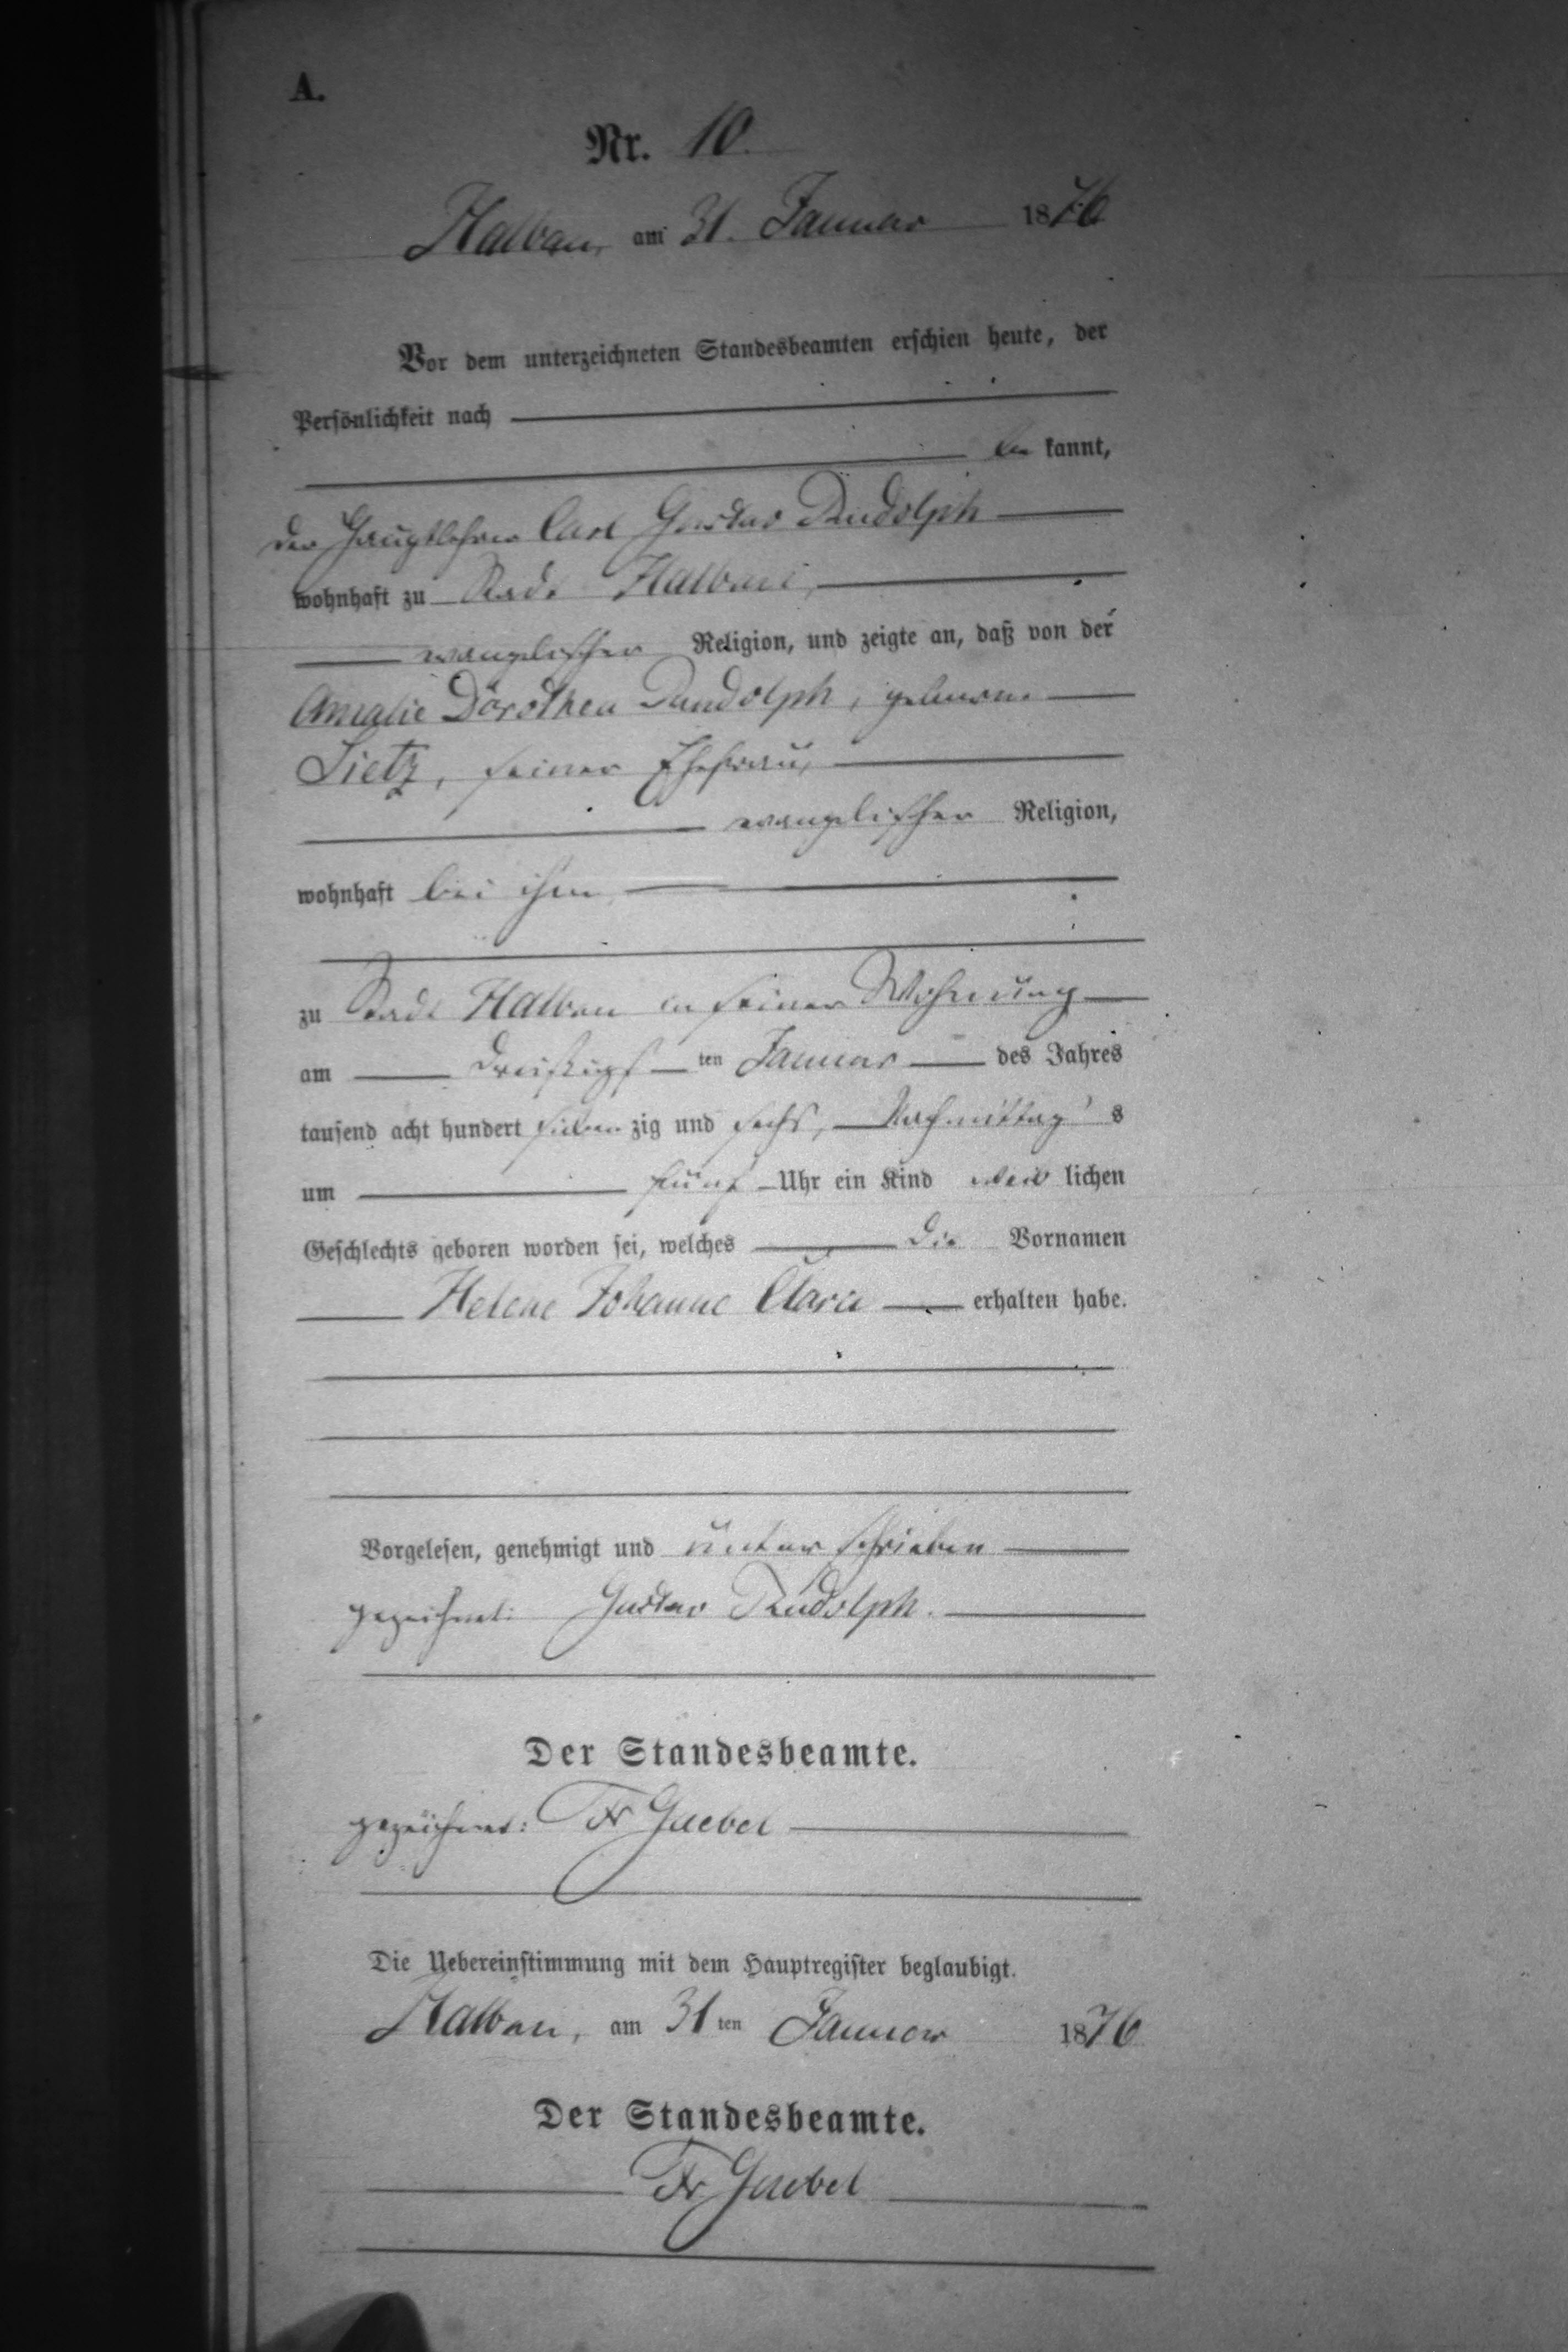 A.
Nr. 10.
Halbau, am 31. Januar 1876
Vor dem unterzeichneten Standesbeamten erschien heute, der
Persönlichkeit nach
be kannt,
der Hauptlehrer Carl Gustav Rudolph
wohnhaft zu Stadt Halbau,
evangelischer Religion, und zeigte an, daß von der
Amalie Dorothea Rudolph, geborne
Lietz, seiner Ehefrau,
evangelischer Religion,
wohnhaft bei ihm,
zu Stadt Halbau in seiner Wohnung
am dreißigs ten Januar des Jahres
tausend acht hundert sieben zig und sechs, Nachmittag s
um fünf Uhr ein Kind weib lichen
Geschlechts geboren worden sei, welches die Vornamen
Helene Johanne Clara erhalten habe.
Vorgelesen, genehmigt und unterschrieben
gezeichnet: Gustav Rudolph.
Der Standesbeamte.
gezeichnet: Fr Gaebel
Die Uebereinstimmung mit dem Hauptregister beglaubigt.
Halbau, am 31 ten Januar 1876
Der Standesbeamte.
Fr Gaebel